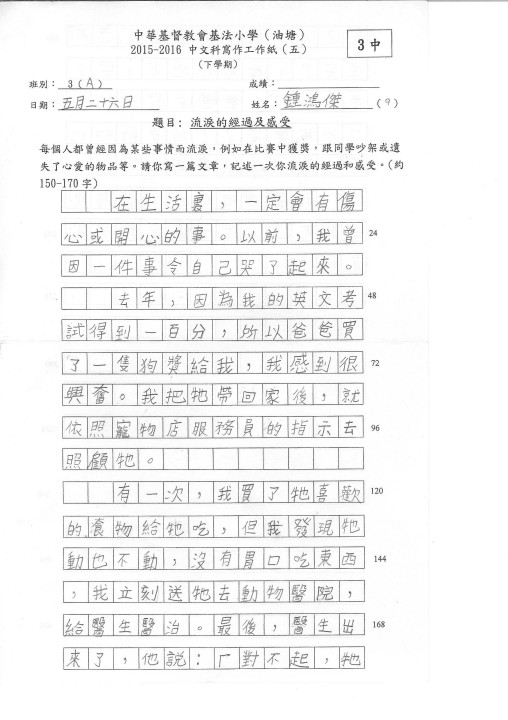 中華基督教會基法小學（油塘）
2015-2016 中文科寫作工作紙（五）
（下學期）
3中
班別： 3(A)
成績：
日期： 五月二十六日
姓名： 鍾鴻傑 (9)
題目：流淚的經過及感受
每個人都曾經因為某些事情而流淚，例如在比賽中獲獎，跟同學吵架或遺
失了心愛的物品等。請你寫一篇文章，記述一次你流淚的經過和感受。（約
150-170 字）
在生活裏，一定會有傷
心或開心的事。以前，我曾 24
因一件事令自己哭了起來。
去年，因為我的英文考 48
試得到一百分，所以爸爸買
了一隻狗獎給我，我感到很 72
興奮。我把牠帶回家後，就
依照寵物店服務員的指示去 96
照顧牠。
有一次，我買了牠喜歡 120
的食物給牠吃，但我發現牠
動也不動，沒有胃口吃東西 144
，我立刻送牠去動物醫院，
給醫生醫治。最後，醫生出 168
來了，他說：「對不起，牠